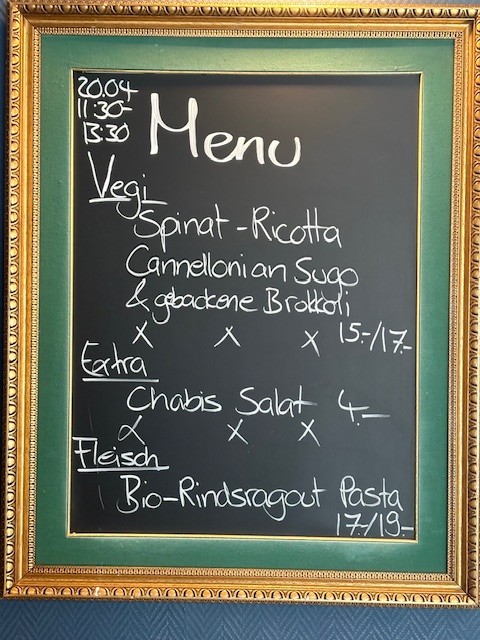 20.04
11:30-
13:30
Menu
Vegi
Spinat-Ricotta
Cannelloni an Sugo
& gebackene Brokkoli
x x x 15.-/17.-
Extra
Chabis Salat 4.-
x x x
Fleisch
Bio-Rindsragout Pasta
17.-/19.-